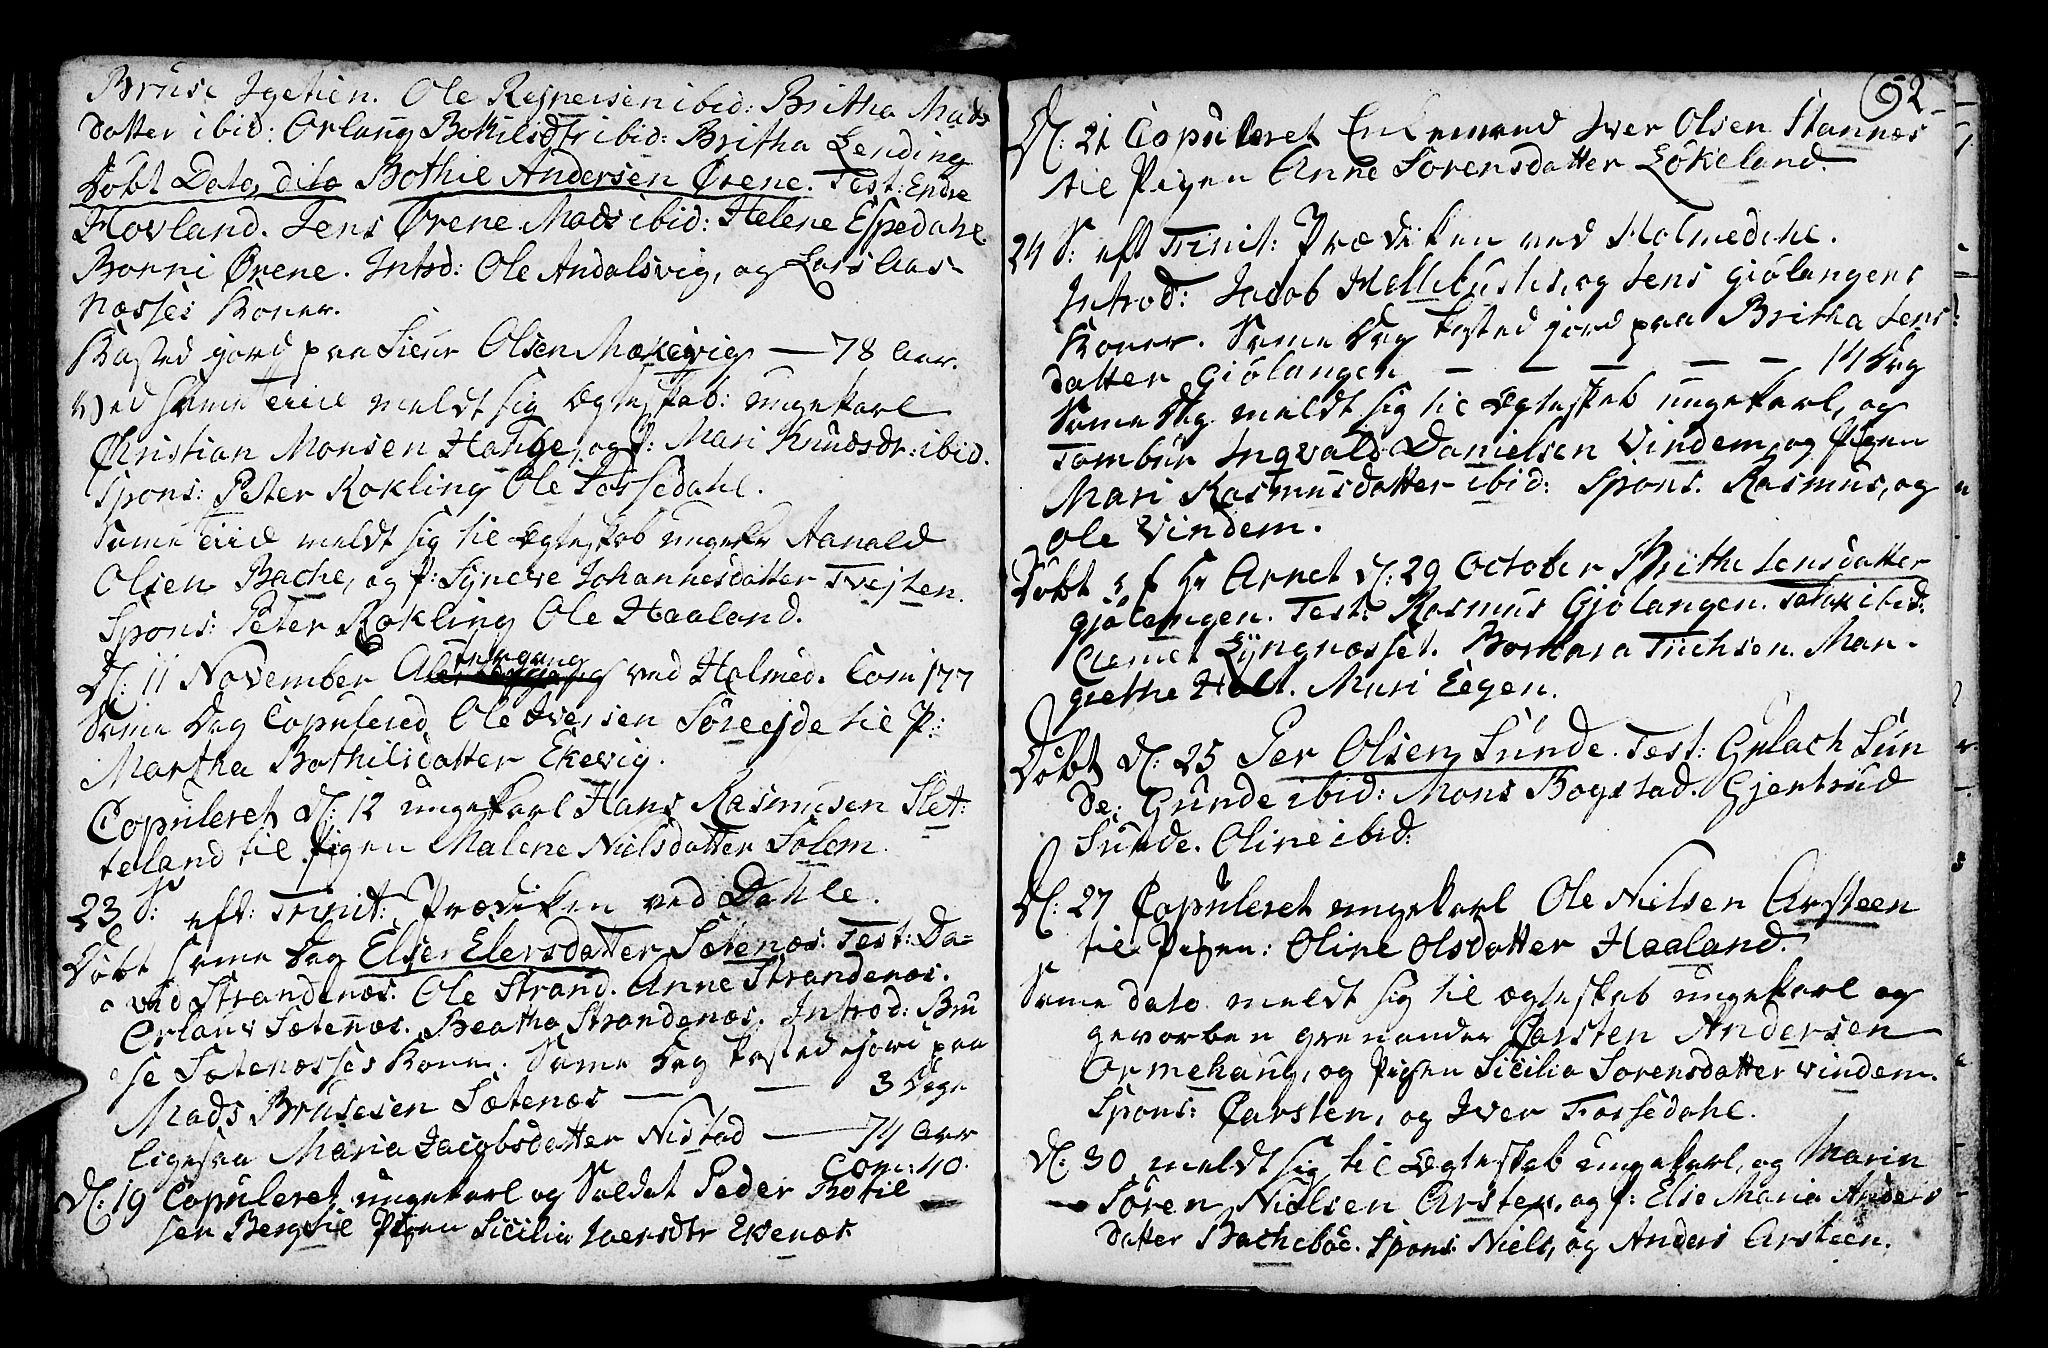 Bruse Igetien. Ole Rejnersen ibid: Britha Mads
datter ibid: Orlaug Botilisdtr ibid: Britha Lending
Döbt Dato, dito Bothil Andersen Ørene. Test: Endre
Hovland. Jens Ørene Mads ibid: Helene Espedahl
Borni Ørene. Introd: Ole Andalsvig, og Lars Aas-
næsses Koner.
Kasted jord paa Sieur Olsen Mækevig — 78 Aar.
Ved same tiid meldt sig Ægteskab: ungekarl
Christian Monsen Hauge, og P: Mari Knudsdr: ibid.
Spons: Peter Rokling Ole Fossedahl.
Same tiid meldt sig til Ægteskab ungek Aanold
Olsen Bache, og P: Synneve Johannesdatter Tvejten.
Spons: Peter Rokling Ole Haaland.
D: 11 November Altergang ved Holmed. Com 177
Same Dag Copulered Ole Iversen Söreide til P:
Martha Bothilsdatter Ekevig.
Copuleret D: 12 ungekarl Hans Rasmusen Slet:
teland til Pigen Malene Nielsdatter Solem.
23 S: eft: Trinit: Prædiken ved Dahle.
Döbt same Dag Else Elersdatter Sætenæs. Test: Da=
vid Strandenæs. Ole Strand. Anne Strandenæs.
Orlaus Sætenæs. Beatha Strandenæs. Introd: Bru
se Sætenæsses Kone. Same Dag kasted jord paa
Mads Brusesen Sætenæs — — 3 Dage
ligesaa Maria Jacobsdatter Nistad — 74 Aar
Com: 40.
D: 19 Copuleret ungekarl og Soldat Peder Botil
sen Berg til Pigen Sicilia Iversdtr Ekenæs
52
D: 21 Copuleret Enkemand Iver Olsen Stannæs
til Pigen Anne Sorensdatter Lökeland.
24 S: eft Trinit: Prædiken ved Holmedahl.
Introd: Jacob Hellebustes, og Jens Giölangers
Koner. Same Dag kasted jord paa Britha Jens:
datter Giölangen — — — — — 14 Dag
Same Dag meldt sig til Ægteskab ungekarl, og
Tambur Ingvald Danielsen Vindem, og Pigen
Mari Rasmusdatter ibid: Spons. Rasmus, og
Ole Vindem.
Döbt af Hr Arnet D: 29 October Brithe Jensdatter
Gjölangen. Test: Rasmus Gjölangen. ibid:
Clemet Lyngnæsset. Barbara Tuchsen. Mar-
grethe Holt. Mari Eegen.
Döbt D: 25 Per Olsen Sunde. Test: Gulach Sun
de: Gunde ibid: Mons Bogstad. Gjertrud
Sunde. Oline ibid:
D: 27 Copuleret ungekarl Ole Nielsen Arsteen
til Pigen: Oline Olsdatter Haaland.
Same dato meldt sig til ægteskab ungekarl og
gevorben grenander Carsten Andersen
Ormehaug, og Pigen Sicilia Sorensdatter Vindem.
Spons: Carsten, og Iver Fossedahl.
D: 30 meldt sig til Ægteskab ungekarl, og Marin
Sören Nielsen Arsteen, og P: Else Maria Anders
datter Bacheböe. Spons: Niels, og Anders Arsteen.